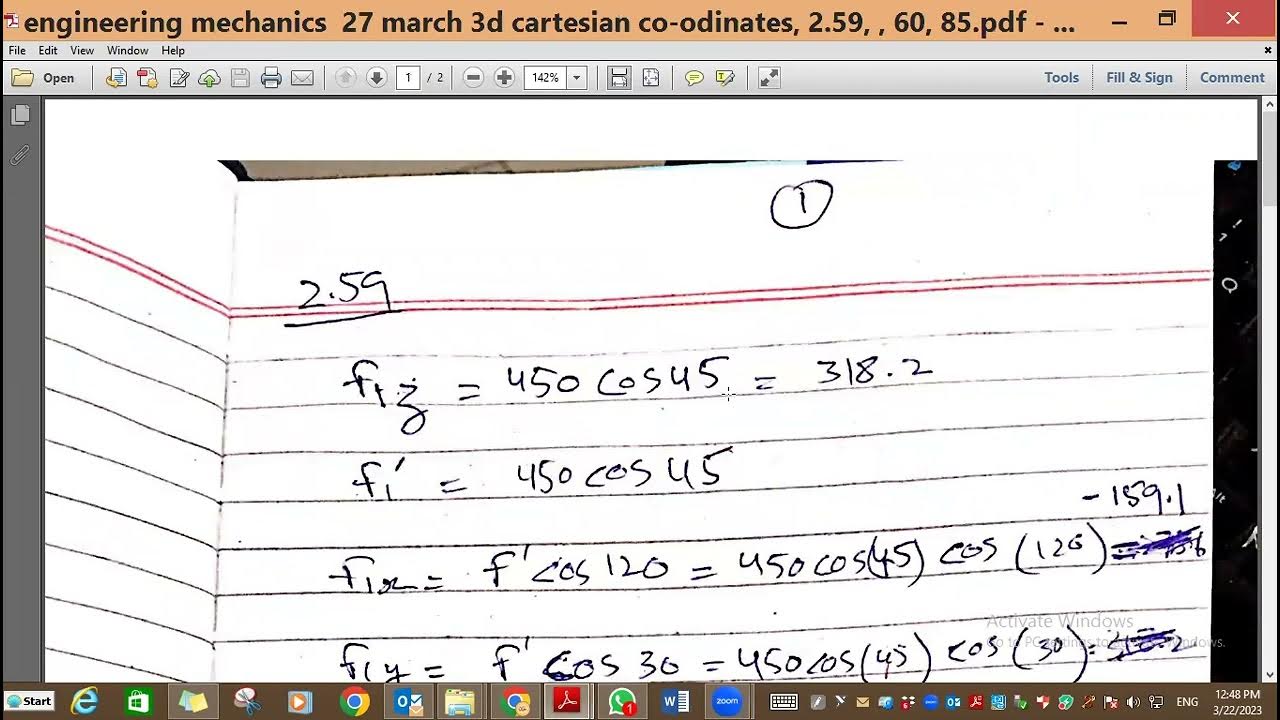 engineering mechanics 27 march 3d cartesian co-odinates, 2.59, , 60, 85.pdf - ...
File Edit View Window Help
Open 1 / 2 142% Tools Fill & Sign Comment
1
2.59
f1z = 450 cos 45 = 318.2
f1' = 450 cos 45
-159.1
f1x = f' cos 120 = 450 cos(45) cos (120) =
f1y = f' cos 30 = 450 cos(45) cos (30)
Activate Windows
Go to PC settings to activate Windows.
Start zoom ENG 12:48 PM
3/22/2023